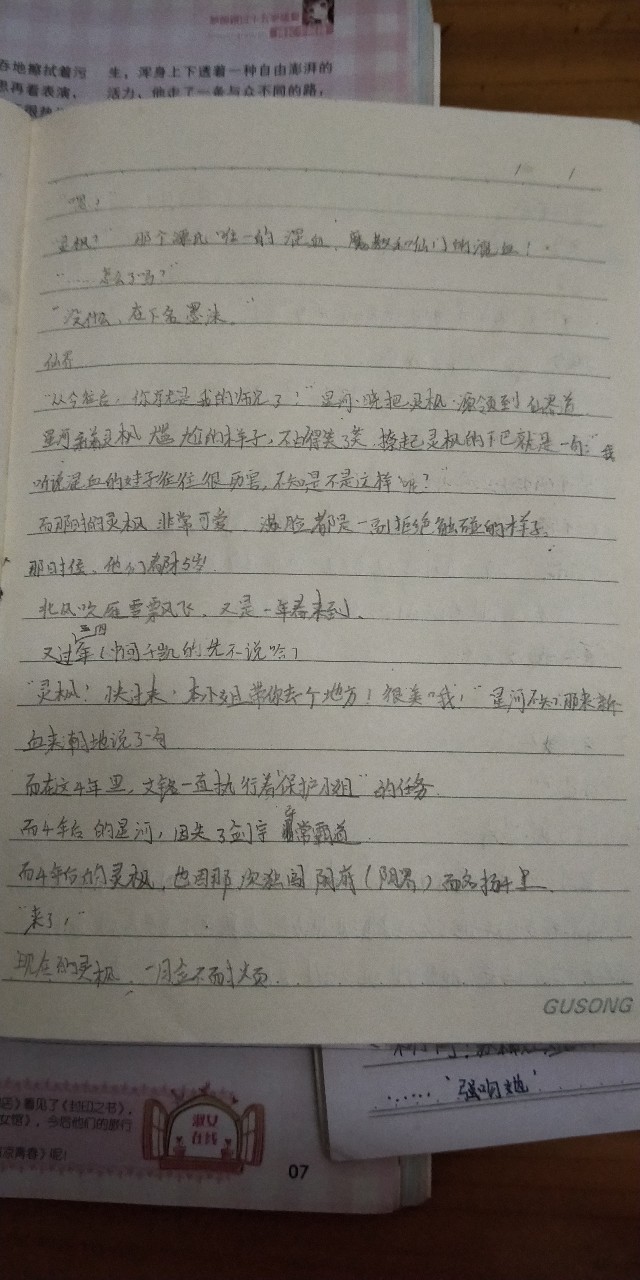 吞地擦拭着污
生，浑身上下透着一种自由澎湃的
思再看表演，
活力，他走了一条与众不同的路，
"嘿！
灵枫？ 那个 唯一的混血， 和仙门的混血！
"……怎么了吗？"
"没什么，在下名墨 。"
仙界
"从今往后，你就是我的师兄了！"星河·晓把灵枫·源领到仙界首
星河 着灵枫尴尬的样子，不由得笑了笑，撩起灵枫的下巴就是一句："我
听说混血的妹子往往很厉害，不知是不是这样呢？"
而那时的灵枫非常可爱，满脸都是一副拒绝触碰的样子。
那时候、他们都才5岁
北风吹 雪飘飞，又是一年春来到。
三四
又过年（中间 的先不说哈）
"灵枫！快过来，本小姐带你去个地方！很美哦！"星河不知哪来新
血来潮地说了句
而在这4年里，文 一直执行着"保护小姐"的任务
而4年后的星河，因失了剑宗 非常霸道
而4年后的灵枫，也因那次独闯阴 （阴界）而名扬千里
"来了，"
现在的灵枫，一月全不耐烦
GUSONG
店》看见了《封印之书》，
女馆》，今后他们的旅行
凉青春》呢！
淑女
在线
07
……"强吻她'